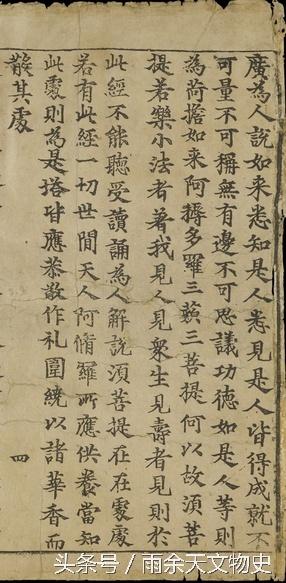 廣為人說如来悉知是人悉見是人皆得成就不
可量不可稱無有邊不可思議功德如是人等則
為荷擔如来阿耨多羅三藐三菩提何以故須菩
提若樂小法者著我見人見衆生見壽者見則於
此經不能聽受讀誦為人解說須菩提在在處處
若有此經一切世間天人阿脩羅所應供養當知
此處則為是塔皆應恭敬作礼圍繞以諸華香而
散其處
四
头条号 / 雨余天文物史